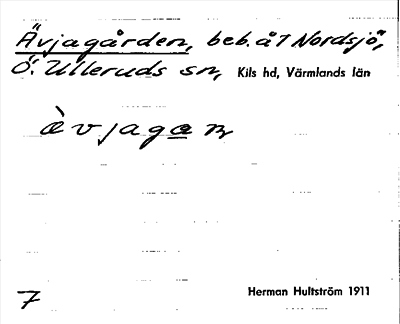 Ävjagården, beb. å 1 Nordsjö,
Ö. Ulleruds sn, Kils hd, Värmlands län
æ̀vjagan
7 Herman Hultström 1911